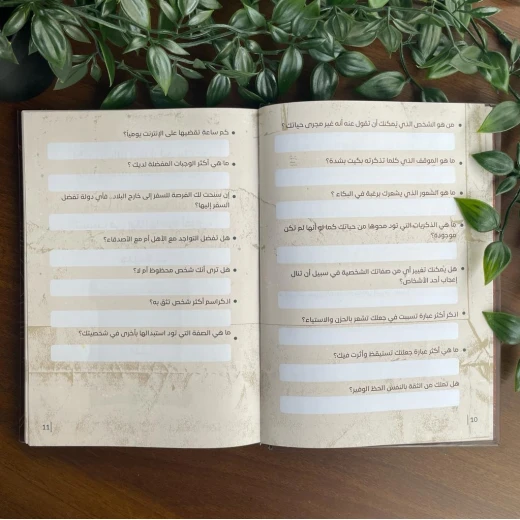 من هو الشخص الذي يمكنك أن تقول عنه أنه غير مجرى حياتك؟
ما هو الموقف الذي كلما تذكرته بكيت بشدة؟
ما هو الشعور الذي يشعرك برغبة في البكاء؟
ما هي الذكريات التي تود محوها من حياتك كما لو أنها لم تكن
موجودة؟
هل يمكنك تغيير أي من صفاتك الشخصية في سبيل أن تنال
إعجاب أحد الأشخاص؟
اذكر أكثر عبارة تسببت في جعلك تشعر بالحزن والاستياء؟
ما هي أكثر عبارة جعلتك تستيقظ وأثرت فيك؟
هل تملك من الثقة بالنفس الحظ الوفير؟
10
كم ساعة تقضيها على الإنترنت يومياً؟
ما هي أكثر الوجبات المفضلة لديك ؟
إن سنحت لك الفرصة للسفر إلى خارج البلاد.. فأي دولة تفضل
السفر إليها؟
هل تفضل التواجد مع الأهل أم مع الأصدقاء؟
هل ترى أنك شخص محظوظ أم لا؟
اذكر اسم أكثر شخص تثق به؟
ما هي الصفة التي تود استبدالها بأخرى في شخصيتك؟
11